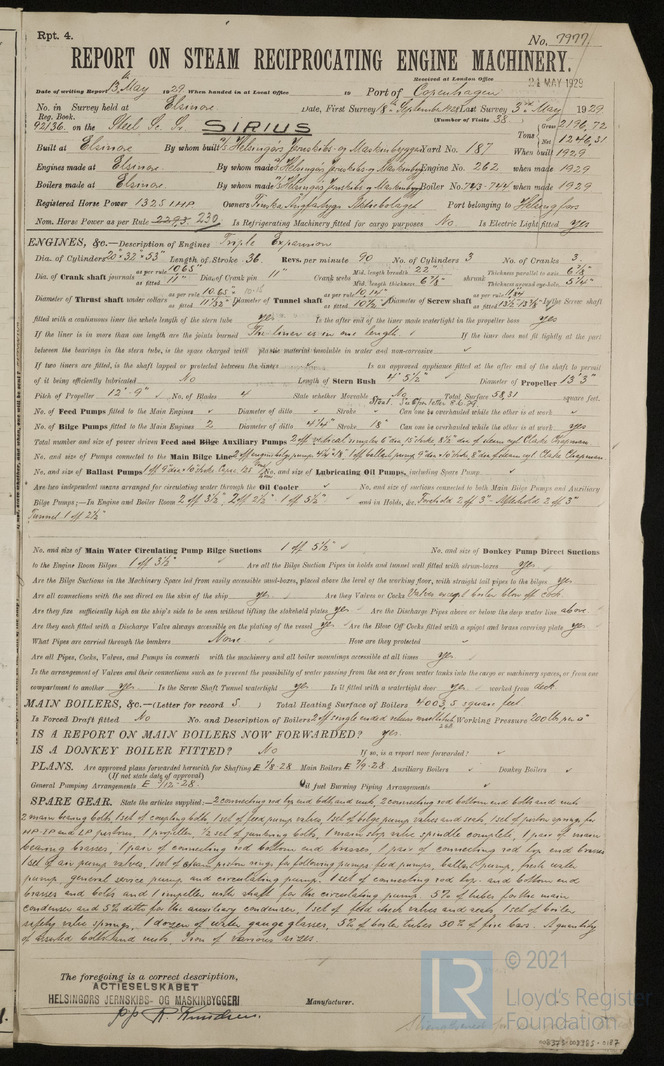 Rpt. 4.
No. 7977
REPORT ON STEAM RECIPROCATING ENGINE MACHINERY.
Received at London Office 21 MAY 1929
Date of writing Report 13th May 1929 When handed in at Local Office 19 Port of Copenhagen
No. in Survey held at Elsinore Date, First Survey 18th September 1928 Last Survey 3rd May 1929
Reg. Book. (Number of Visits 38)
92136 on the Steel Sc. Sr. SIRIUS Tons Gross 2196,72 Net 1246,31
Built at Elsinore By whom built A/S Helsingørs Jernskibs- og Maskinbyggeri Yard No. 187 When built 1929
Engines made at Elsinore By whom made A/S Helsingørs Jernskibs og Maskinbyggeri Engine No. 262 when made 1929
Boilers made at Elsinore By whom made A/S Helsingørs Jernskibs og Maskinbyggeri Boiler No. 743-744 when made 1929
Registered Horse Power 1325 IHP Owners Finska Ångfartygs Aktiebolaget Port belonging to Helsingfors
Nom. Horse Power as per Rule 230 Is Refrigerating Machinery fitted for cargo purposes No Is Electric Light fitted yes
ENGINES, &c.—Description of Engines Triple Expansion
Dia. of Cylinders 20" 32" 53" Length of Stroke 36. Revs. per minute 90 No. of Cylinders 3 No. of Cranks 3
Dia. of Crank shaft journals as per rule 10.65" as fitted 11" Dia. of Crank pin 11" Crank webs Mid. length breadth 22" Mid. length thickness 6 7/8" shrunk Thickness parallel to axis 6 7/8" Thickness around eye-hole 5 1/4"
Diameter of Thrust shaft under collars as per rule 10.65" as fitted Diameter of Tunnel shaft as per rule 10.14" as fitted Diameter of Screw shaft as per rule as fitted Is the Screw shaft
fitted with a continuous liner the whole length of the stern tube yes Is the after end of the liner made watertight in the propeller boss yes
If the liner is in more than one length are the joints burned The liner is in one length. If the liner does not fit tightly at the part
between the bearings in the stern tube, is the space charged with plastic material insoluble in water and non-corrosive
If two liners are fitted, is the shaft lapped or protected between the liners Is an approved appliance fitted at the after end of the shaft to permit
of it being efficiently lubricated No Length of Stern Bush 4' 5 1/2" Diameter of Propeller 13' 3"
Pitch of Propeller 12'-9" No. of Blades 4 State whether Moveable No Total Surface 58,31 square feet.
No. of Feed Pumps fitted to the Main Engines Diameter of ditto Stroke Can one be overhauled while the other is at work
No. of Bilge Pumps fitted to the Main Engines 2 Diameter of ditto 4 1/4" Stroke 18" Can one be overhauled while the other is at work yes
Total number and size of power driven Feed and Bilge Auxiliary Pumps
No. and size of Pumps connected to the Main Bilge Line
No. and size of Ballast Pumps No. and size of Lubricating Oil Pumps, including Spare Pump
Are two independent means arranged for circulating water through the Oil Cooler No. and size of suctions connected to both Main Bilge Pumps and Auxiliary
Bilge Pumps;—In Engine and Boiler Room 2 off 3 1/2" 2 off 2 1/2" 1 off 5 1/2" and in Holds, &c. Forehold 2 off 3" - Afterhold 2 off 3"
Tunnel 1 off 2 1/2"
No. and size of Main Water Circulating Pump Bilge Suctions 1 off 5 1/2" No. and size of Donkey Pump Direct Suctions
to the Engine Room Bilges 1 off 3 1/2" Are all the Bilge Suction Pipes in holds and tunnel well fitted with strum-boxes yes
Are the Bilge Suctions in the Machinery Space led from easily accessible mud-boxes, placed above the level of the working floor, with straight tail pipes to the bilges yes
Are all connections with the sea direct on the skin of the ship yes. Are they Valves or Cocks Valves except boiler blow off cock.
Are they fixed sufficiently high on the ship's side to be seen without lifting the stokehold plates yes Are the Discharge Pipes above or below the deep water line above
Are they each fitted with a Discharge Valve always accessible on the plating of the vessel yes Are the Blow Off Cocks fitted with a spigot and brass covering plate yes
What Pipes are carried through the bunkers None How are they protected
Are all Pipes, Cocks, Valves, and Pumps in connection with the machinery and all boiler mountings accessible at all times yes
Is the arrangement of Valves and their connections such as to prevent the possibility of water passing from the sea or from water tanks into the cargo or machinery spaces, or from one
compartment to another yes Is the Screw Shaft Tunnel watertight yes Is it fitted with a watertight door yes worked from deck
MAIN BOILERS, &c.—(Letter for record S) Total Heating Surface of Boilers 4003,5 square feet
Is Forced Draft fitted No No. and Description of Boilers 2 off single ended return multitub. Working Pressure 200 lbs per □"
IS A REPORT ON MAIN BOILERS NOW FORWARDED? yes.
IS A DONKEY BOILER FITTED? No If so, is a report now forwarded?
PLANS. Are approved plans forwarded herewith for Shafting E 1/8-28 Main Boilers E 7/9-28 Auxiliary Boilers Donkey Boilers
(If not state date of approval)
General Pumping Arrangements E 1/12-28. Oil fuel Burning Piping Arrangements
SPARE GEAR. State the articles supplied:—2 connecting rod top end bolts and nuts, 2 connecting rod bottom end bolts and nuts
2 main bearing bolts, 1 set of coupling bolts 1 set of feed pump valves, 1 set of bilge pump valves and seats, 1 set of piston springs for
HP-IP and LP pistons, 1 propeller, 1/2 set of junkring bolts, 1 main stop valve spindle complete, 1 pair of main
bearing brasses, 1 pair of connecting rod bottom end brasses, 1 pair of connecting rod top end brasses
1 set of air pump valves, 1 set of steam piston rings for following pumps: feed pumps, ballast pump, fresh water
pump, general service pump and circulating pump. 1 set of connecting rod top and bottom end
brasses and bolts and 1 impeller with shaft for the circulating pump. 5% of tubes for the main
condenser and 5% ditto for the auxiliary condenser, 1 set of feed check valves and seats, 1 set of boiler
safety valve springs, 1 dozen of water gauge glasses, 5% of boiler tubes 50% of fire bars. A quantity
of assorted bolts and nuts. Iron of various sizes.
The foregoing is a correct description,
ACTIESELSKABET
HELSINGØRS JERNSKIBS- OG MASKINBYGGERI Manufacturer.
pp R. Knudsen.
© 2021
LR
Lloyd's Register
Foundation